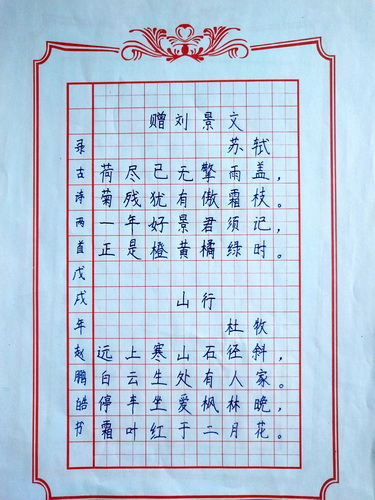 赠刘景文
苏轼
荷尽已无擎雨盖，
菊残犹有傲霜枝。
一年好景君须记，
正是橙黄橘绿时。
山行
杜牧
远上寒山石径斜，
白云生处有人家。
停车坐爱枫林晚，
霜叶红于二月花。
录古诗两首戊戌年赵鹏皓书